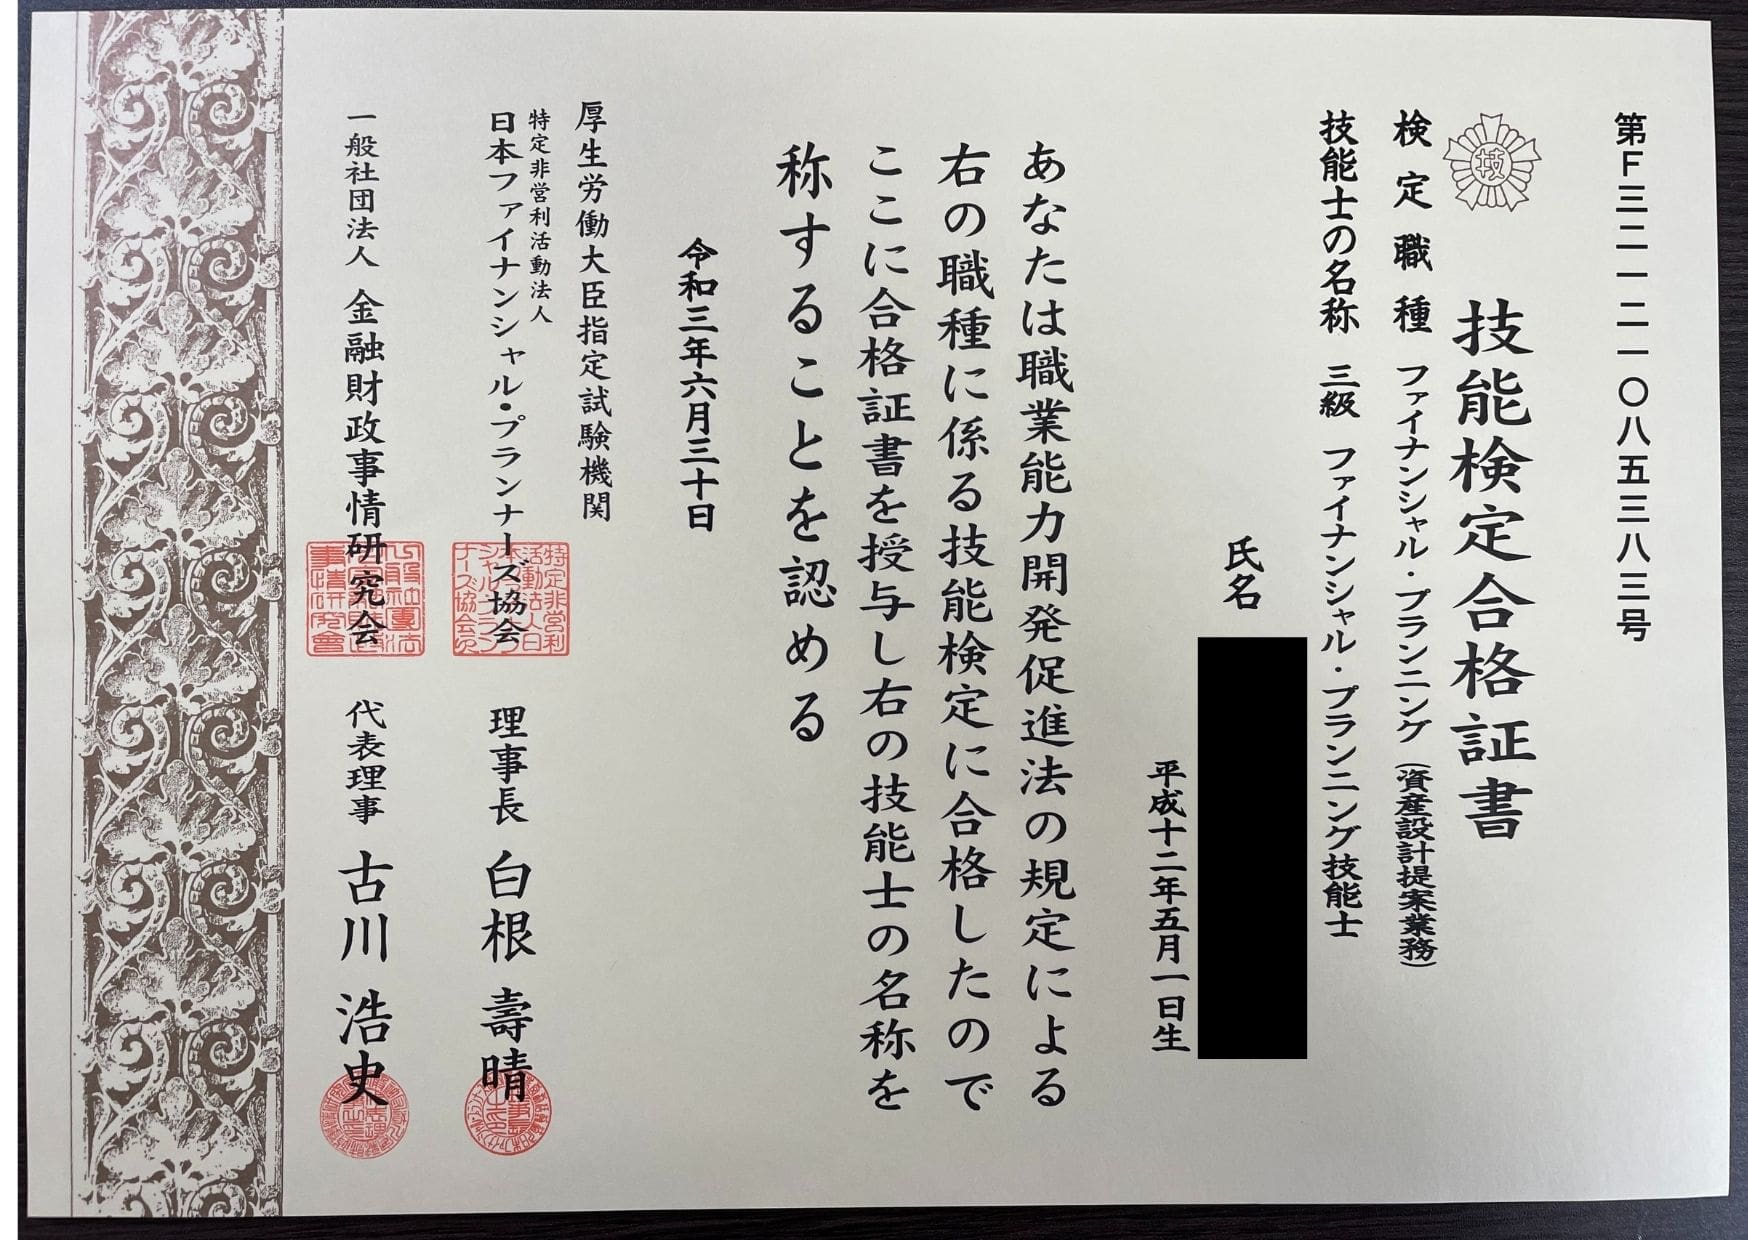 第F三二一二一〇八五三八三号
技能検定合格証書
技
検定職種 ファイナンシャル・プランニング(資産設計提案業務)
技能士の名称 三級 ファイナンシャル・プランニング技能士
氏名
平成十二年五月一日生
あなたは職業能力開発促進法の規定による
右の職種に係る技能検定に合格したので
ここに合格証書を授与し右の技能士の名称を
称することを認める
令和三年六月三十日
厚生労働大臣指定試験機関
特定非営利活動法人
日本ファイナンシャル・プランナーズ協会 理事長 白根 壽晴
一般社団法人 金融財政事情研究会 代表理事 古川 浩史